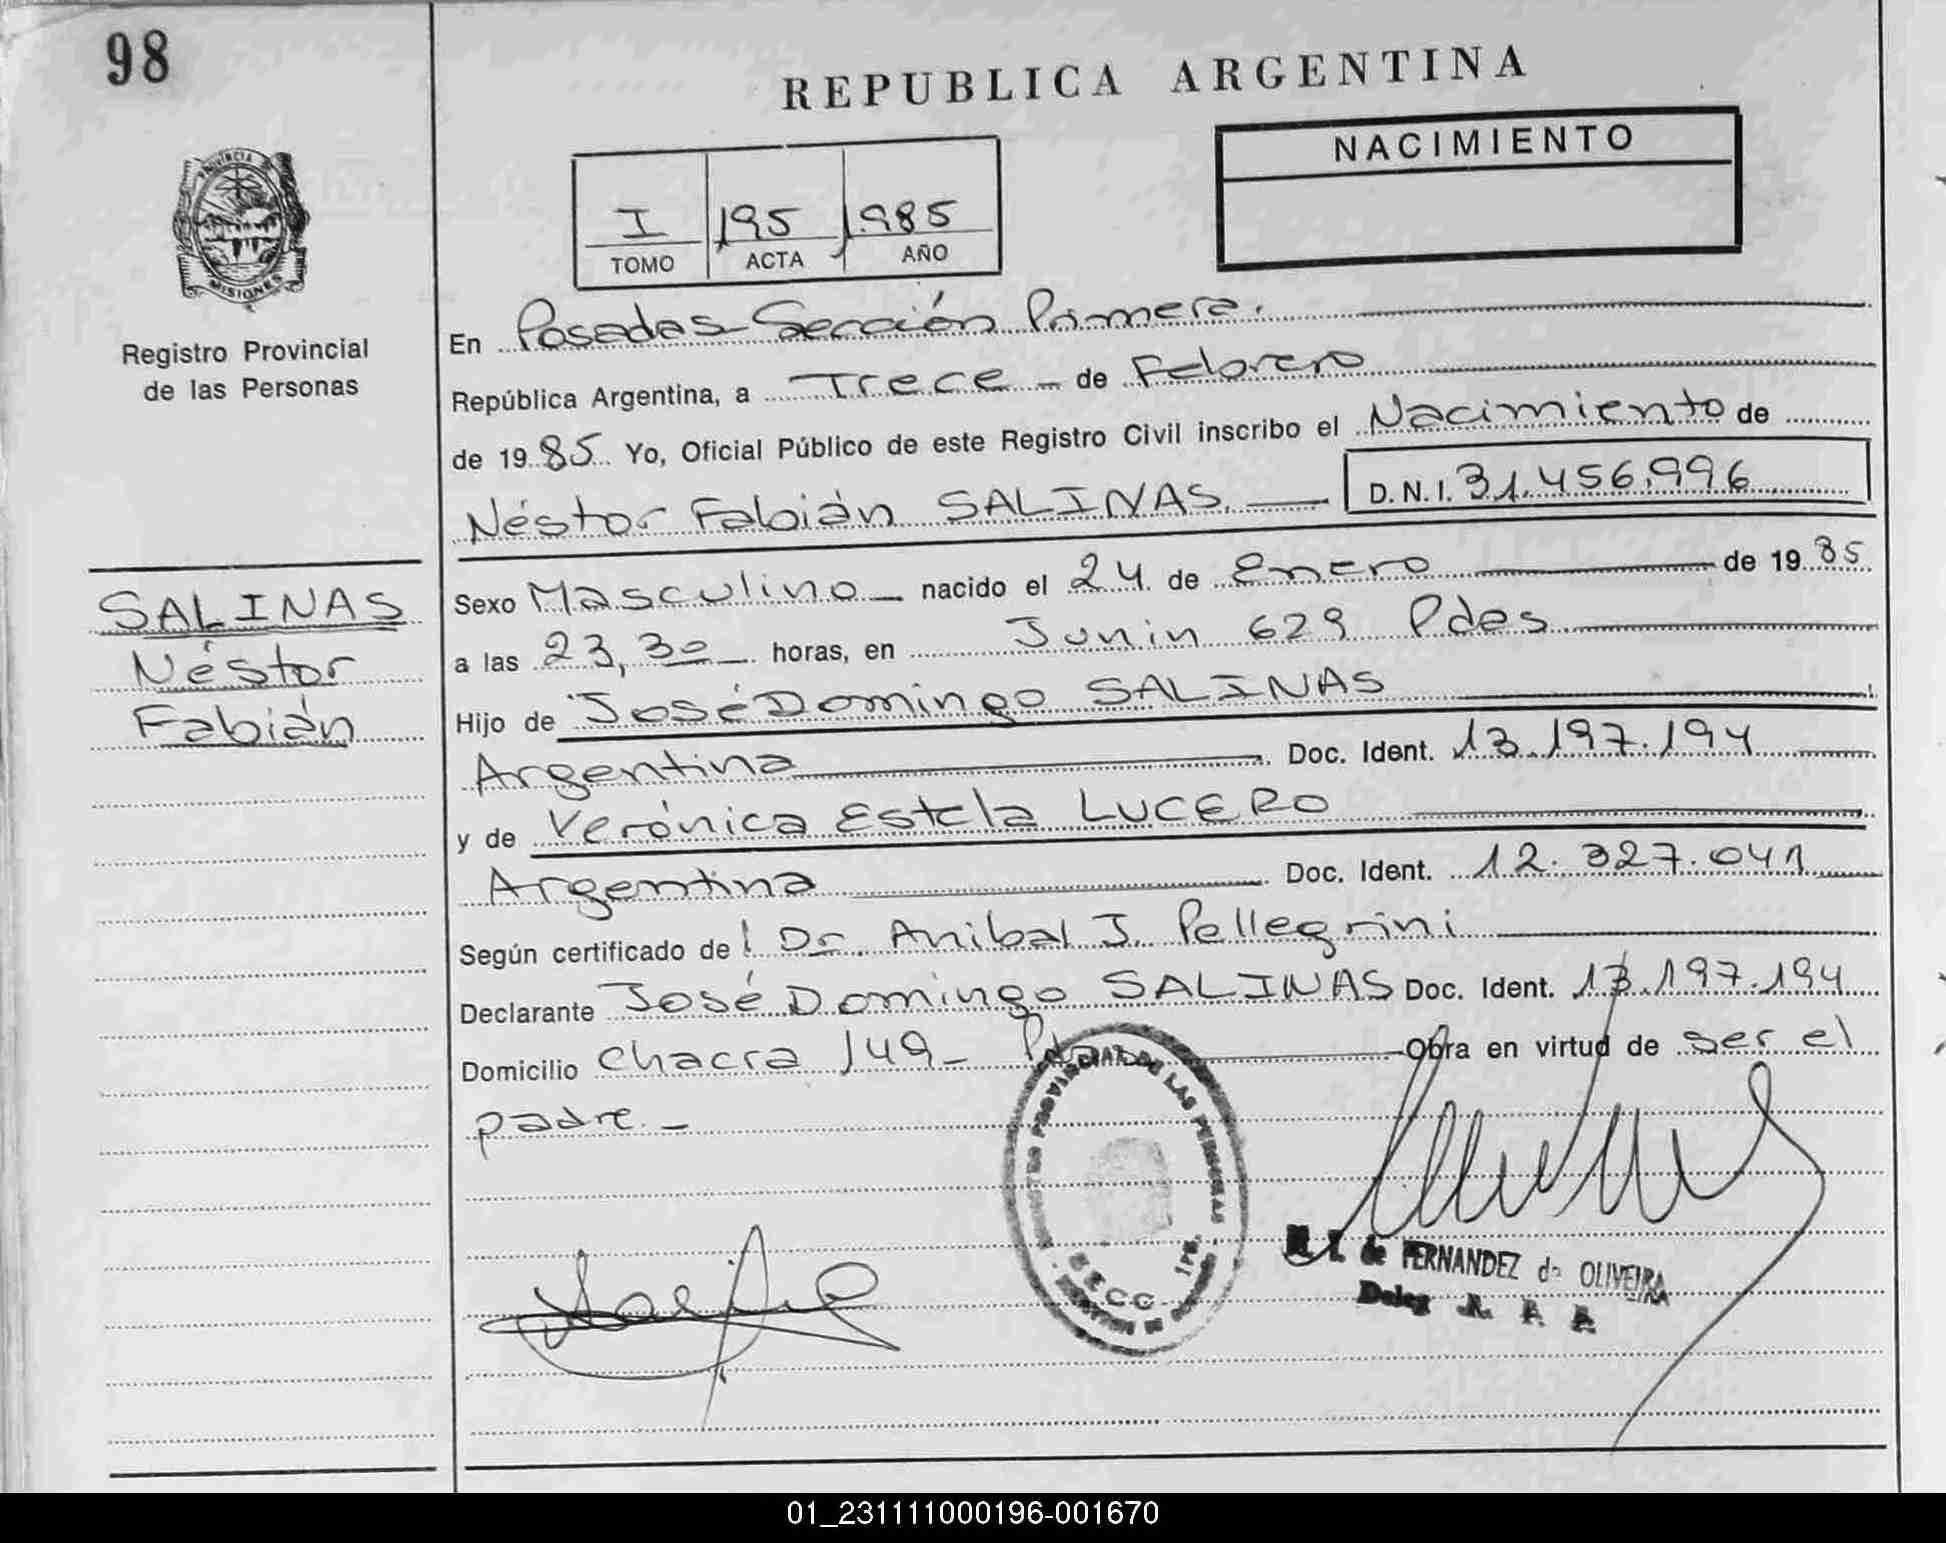 98
REPUBLICA ARGENTINA
NACIMIENTO
PROVINCIA
MISIONES
Registro Provincial
de las Personas
I 195 1985
TOMO ACTA AÑO
En Posadas-Sección Primera.
República Argentina, a Trece de Febrero
de 1985 Yo, Oficial Público de este Registro Civil inscribo el Nacimiento de
Néstor Fabián SALINAS. D.N.I. 31.456.996
SALINAS
Néstor
Fabián
Sexo Masculino nacido el 24 de Enero de 1985
a las 23,30 horas, en Junin 629 Pdas
Hijo de José Domingo SALINAS
Argentina Doc. Ident. 13.197.194
y de Verónica Estela LUCERO
Argentina Doc. Ident. 12.327.041
Según certificado de Dr. Anibal J. Pellegrini
Declarante José Domingo SALINAS Doc. Ident. 13.197.194
Domicilio Chacra 149- Obra en virtud de ser el
padre.-
PROVINCIAL DE LAS PERSONAS
SECC. 1RA.
de FERNANDEZ de OLIVEIRA
01_231111000196-001670